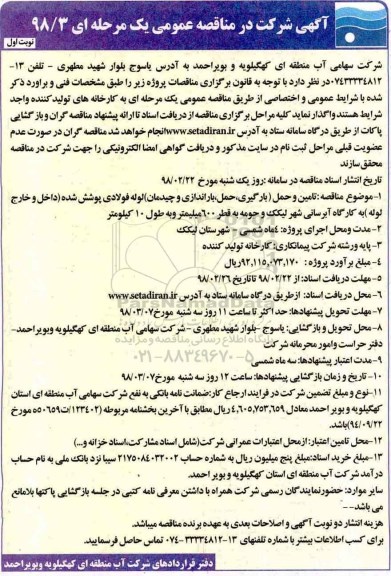 آگهی شرکت در مناقصه عمومی یک مرحله ای ۹۸/۳
نوبت اول
شرکت سهامی آب منطقه ای کهگیلویه و بویراحمد به آدرس یاسوج بلوار شهید مطهری - تلفن ۱۳-
۰۷۴۳۳۳۳۴۸۱۲در نظر دارد با توجه به قانون برگزاری مناقصات پروژه زیر را طبق مشخصات فنی و برآورد ذکر
شده با شرایط عمومی و اختصاصی از طریق مناقصه عمومی یک مرحله ای به کارخانه های تولیدکننده واجد
شرایط هستند واگذار نماید کلیه مراحل برگزاری مناقصه از دریافت اسناد تا ارائه پیشنهاد مناقصه گران و بازگشایی
پاکات از طریق درگاه سامانه ستاد به آدرس www.setadiran.irانجام خواهد شد مناقصه گران در صورت عدم
عضویت قبلی مراحل ثبت نام در سایت مذکور و دریافت گواهی امضا الکترونیکی را جهت شرکت در مناقصه
محقق سازند
تاریخ انتشار اسناد مناقصه در سامانه :روز یک شنبه مورخ ۹۸/۰۲/۲۲
۱-موضوع مناقصه :تامین و حمل (بارگیری،حمل،باراندازی و چیدمان)لوله فولادی پوشش شده (داخل و خارج
لوله )به کارگاه آبرسانی شهر لیکک و حومه به قطر ۶۰۰میلیمتر وبه طول ۱۰ کیلومتر
۲-مدت ومحل اجرای پروژه: ۴ماه شمسی - شهرستان لیکک
۳-پایه ورشته شرکت پیمانکاری: کارخانه تولید کننده
۴-مبلغ برآورد پروژه : ۹۲،۱۱۵،۰۷۳،۱۷۰ریال
۵-مهلت دریافت اسناد: از ۹۸/۰۲/۲۲ تا تاریخ ۹۸/۰۲/۲۶
۶-محل دریافت اسناد: ازطریق درگاه سامانه ستاد به آدرس www.setadiran.ir
۷-مهلت تحویل پیشنهادها: حد اکثر تا ساعت ۱۱ روز سه شنبه مورخ ۹۸/۰۳/۰۷
۸-محل تحویل و بازگشایی: یاسوج -بلوار شهید مطهری - شرکت سهامی آب منطقه ای کهگیلویه وبویراحمد-
دفتر حراست وامور محرمانه شرکت
۹-مدت اعتبار پیشنهادها: سه ماه شمسی
۱۰-تاریخ و زمان بازگشایی پیشنهادها: ساعت ۱۲ روز سه شنبه مورخ ۹۸/۰۳/۰۷
۱۱-نوع و مبلغ تضمین شرکت در فرایند ارجاع کار:ضمانت نامه بانکی به نفع شرکت سهامی آب منطقه ای استان
کهگیلویه و بویر احمد معادل ۴،۶۰۵،۷۵۳،۶۵۹ ریال مطابق با آخرین بخشنامه مربوطه (۱۲۳۴۰۲/ت۵۰۶۵۹ه مورخ
۹۴/۰۹/۲۲)باشد.
۱۲-محل تامین اعتبار: ازمحل اعتبارات عمرانی شرکت(شامل اسناد مشارکت،اسناد خزانه و...)
۱۳-مبلغ خرید اسناد:مبلغ پنج میلیون ریال به شماره حساب ۲۱۷۵۰۸۴۰۳۲۰۰۲ سیبا نزد بانک ملی به نام حساب
درآمد شرکت آب منطقه ای استان کهگیلویه و بویر احمد.
سایر موارد: حضورنمایندگان رسمی شرکت همراه با داشتن معرفی نامه کتبی در جلسه بازگشایی پاکتها بلامانع
می باشد--
هزینه انتشار دو نوبت آگهی و اصلاحات بعدی به عهده برنده مناقصه میباشد.
برای کسب اطلاعات بیشتر با شماره تلفنهای ۱۳-۳۳۳۳۴۸۱۲-۰۷۴ تماس حاصل فرمایید.
دفتر قراردادهای شرکت آب منطقه ای کهگیلویه وبویراحمد
پایگاه اطلاع رسانی مناقصه و مزایده
ParsNamadData
۰۲۱-۸۸۳۴۹۶۷۰-۵